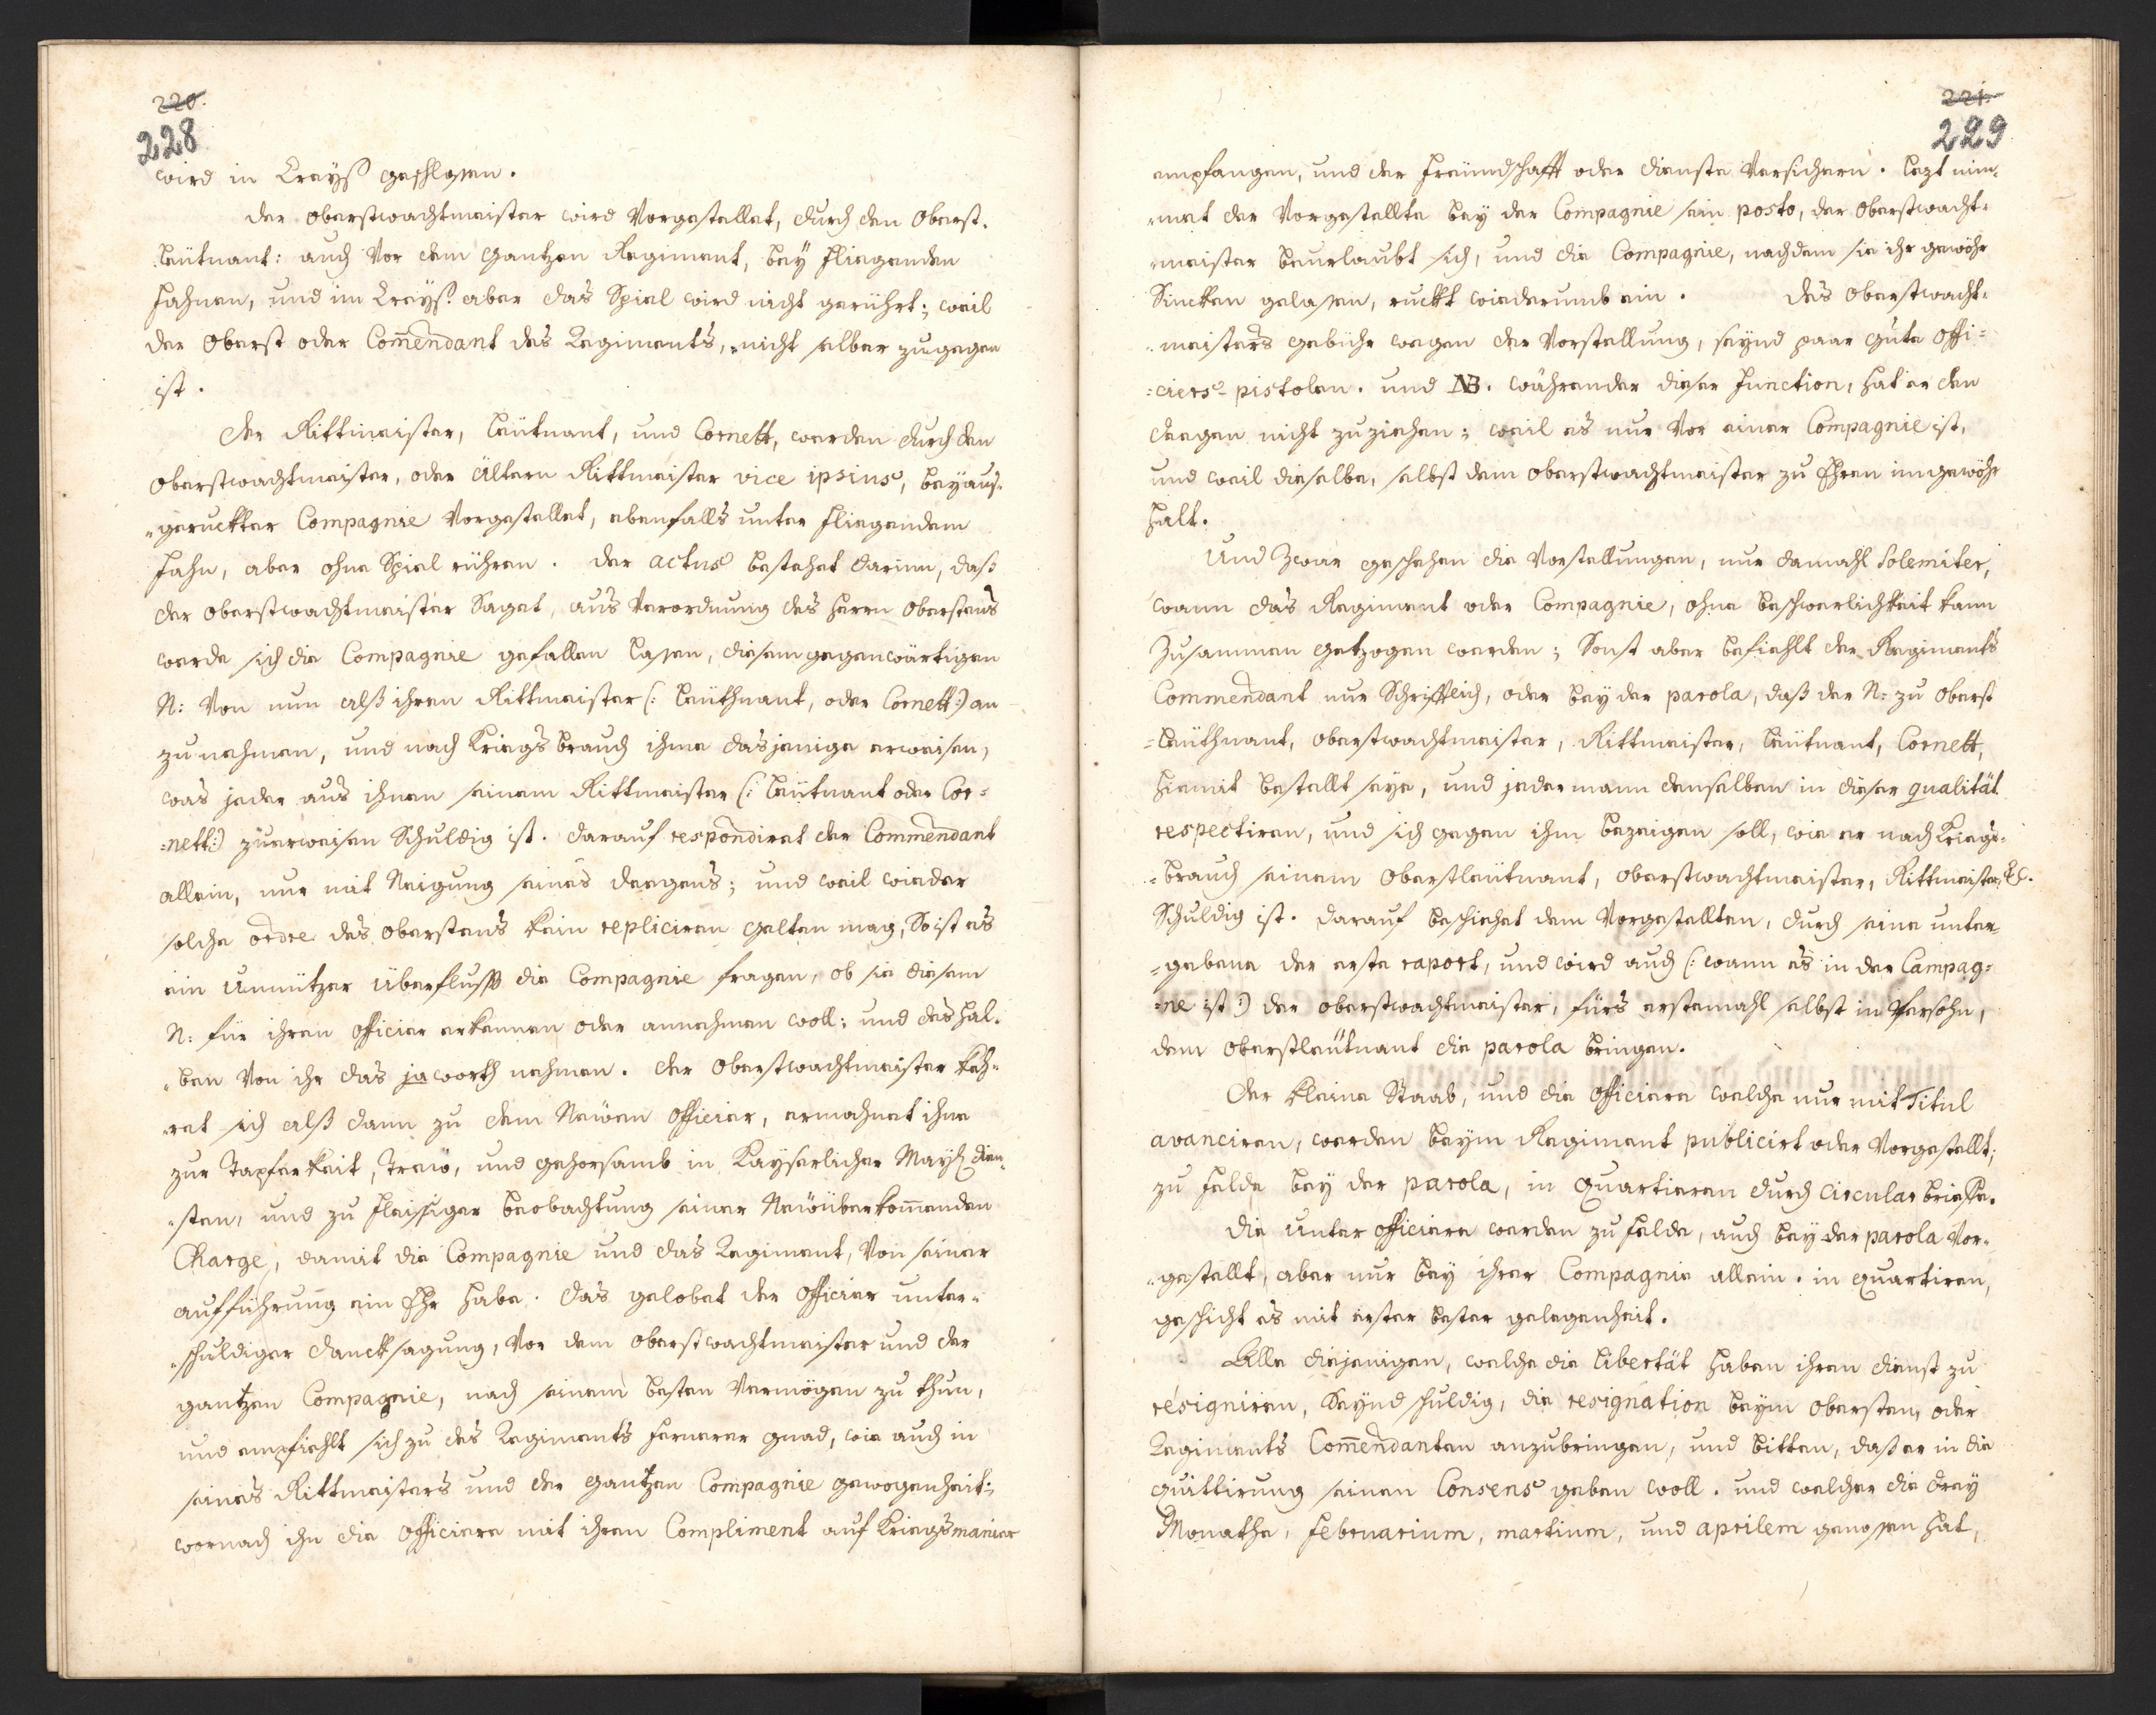 220.
228
wird in Creyß geschlossen.
der oberstwachtmeister wird Vorgestellet, durch den Oberst-
leütnant: auch Vor dem gantzen Regiment, bey fliegenden
fahnen, und im Creyß: aber das Spiel wird nicht gerührt; weil
der Oberst oder Com̄endant des Regiments, nicht selber zugegen
ist.
Der Rittmeister, leütnant, und Cornett, werden durch den
Oberstwachtmeister, oder ältern Rittmeister vice ipsius, bey aus-
-geruckter Compagnie Vorgestellet, ebenfalls unter fliegendem
fahn, aber ohne Spiel rühren. der actus bestehet darinn, daß
der oberstwachtmeister Saget, aus Verordnung des herrn Obersten
werde sich die Compagnie gefallen lassen, diesem gegenwärtigen
N: Von nun alß ihren Rittmeister (: leüthnant, oder Cornett:) an
zu nehmen, und nach Kriegsbrauch ihme dasjenige erweisen,
was jeder aus ihnen seinem Rittmeister (: leütnant oder Cor=
=nett:) zuerweisen Schuldig ist. darauf respondiret der Commendant
allein, nur mit Neigung seines deegens; und weil wieder
solche ordre des obersten kein repliciren gelten mag, So ist es
ein unnützer überfluss die Compagnie fragen, ob sie diesem
N: für ihren officier erkennen oder annehmen woll; und deshal-
-ben Von ihr das jaworth nehmen. der Oberstwachtmeister keh-
-ret sich alß dann zu dem Newen Officier, ermahnet ihne
zur Tapferkeit, Trew, und gehorsamb in Kayserlicher May: dien-
-sten, und zu fleissiger beobachtung seiner Newüberkom̄enden
Charge, damit die Compagnie und das Regiment, Von seiner
aufführung ein Ehr habe. das gelobet der officier unter-
-schuldiger dancksagung, Vor dem oberstwachtmeister und der
gantzen Compagnie, nach seinem besten Vermögen zu thun,
und empfiehlt sich zu des Regiments fernerer gnad, wie auch in
seines Rittmeisters und der gantzen Compagnie gewogenheit:
wornach ihn die officiere mit ihren Compliment auf Kriegsmanier
221.
229
empfangen, und der freündschafft oder dienste Versichern. lezt nim-
-met der Vorgestellte bey der Compagnie sein posto, der oberstwacht-
-meister beurlaubt sich, und die Compagnie, nachdem sie ihr gewöhr
Sincken gelassen, ruckt wiederumb ein. des Oberstwacht-
-meisters gebühr wegen der Vorstellung, seynd paar gute offi=
=ciers-pistolen. und NB. währender dieser function, hat er den
deegen nicht zuziehen; weil es nur Vor einer Compagnie ist,
und weil dieselbe, selbst dem oberstwachtmeister zu Ehren im gewöhr
halt.
Und zwar geschehen die Vorstellungen, nur damahl solemiter,
wann das Regiment oder Compagnie, ohne beschwerlichkeit kann
Zusammen gezogen werden; Sonst aber befiehlt der Regiments
Commendant nur Schrifftlich, oder bey der parola, daß der N: zu Oberst
=leüthnant, oberstwachtmeister, Rittmeister, leütnant, Cornett,
hiemit bestellt seye, und jedermann denselben in dieser qualität
respectiren, und sich gegen ihm bezeigen soll, wie er nach Kriegs-
-brauch seinem Oberstleütnant, oberstwachtmeister, Rittmeister, &c.
Schuldig ist. darauf beschiehet dem Vorgestellten, durch seine unter-
-gebene der erste raport, und wird auch (: wann es in der Campag=
=ne ist:) der oberstwachtmeister, fürs erstemahl selbst in Persohn,
dem Oberstleütnant die parola bringen.
Der kleine Staab, und die officiere welche nur mit Titul
avanciren, werden beym Regiment publicirt oder Vorgestellt;
zu felde bey der parola, in Quartieren durch circular brieffe.
Die unter officiere werden zu felde, auch bey der parola Vor-
-gestellt, aber nur bey ihrer Compagnie allein. in quartiren,
geschicht es mit erster bester gelegenheit.
Alle diejenigen, welche die libertät haben ihren dienst zu
resigniren, Seynd schuldig, die resignation beym obersten, oder
Regiments Com̄endanten anzubringen, und bitten, daß er in die
quittirung seinen Consens geben woll. und welcher die drey
Monathe, februarium, martium, und aprilem genossen hat,